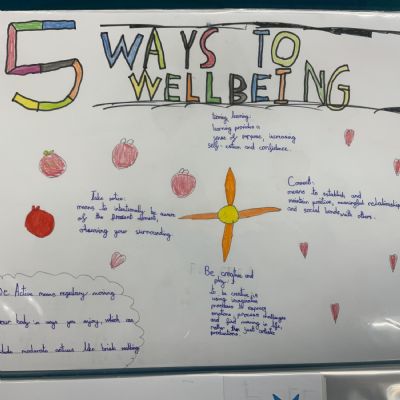 5 WAYS TO
WELLBEING
learning:
learning provides a
sense of purpose, increasing
self-esteem and confidence.
Take notice:
means to intentionally be aware
of the present moment,
observing your surrounding
Connect:
means to establish and
maintain positive, meaningful relationships
and social bonds with others.
Be creative and
play:
to be creative is
using imaginative
processes to express
emotions, process challenges
and find meaning in life,
rather than just artistic
productions
Be Active means regulary moving
your body in ways you enjoy, which can
include moderate actives like brisk walking